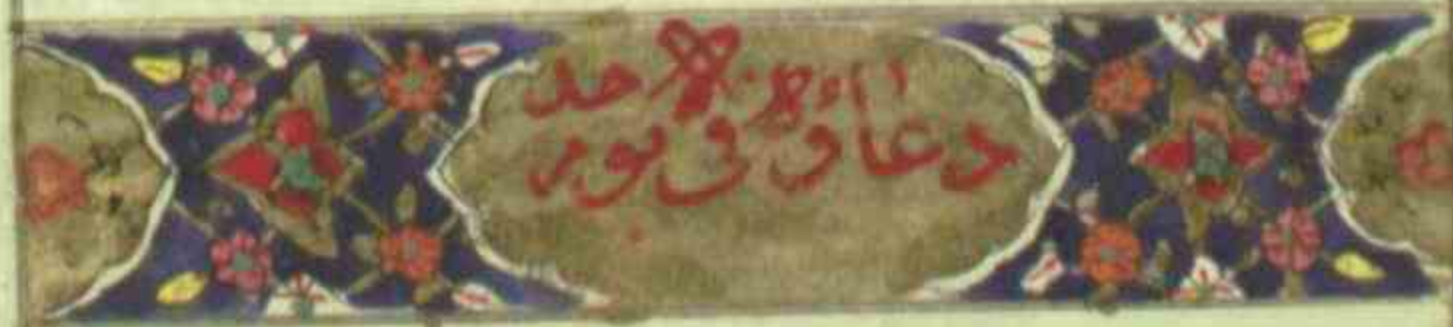 دعاؤه في يوم الاحد